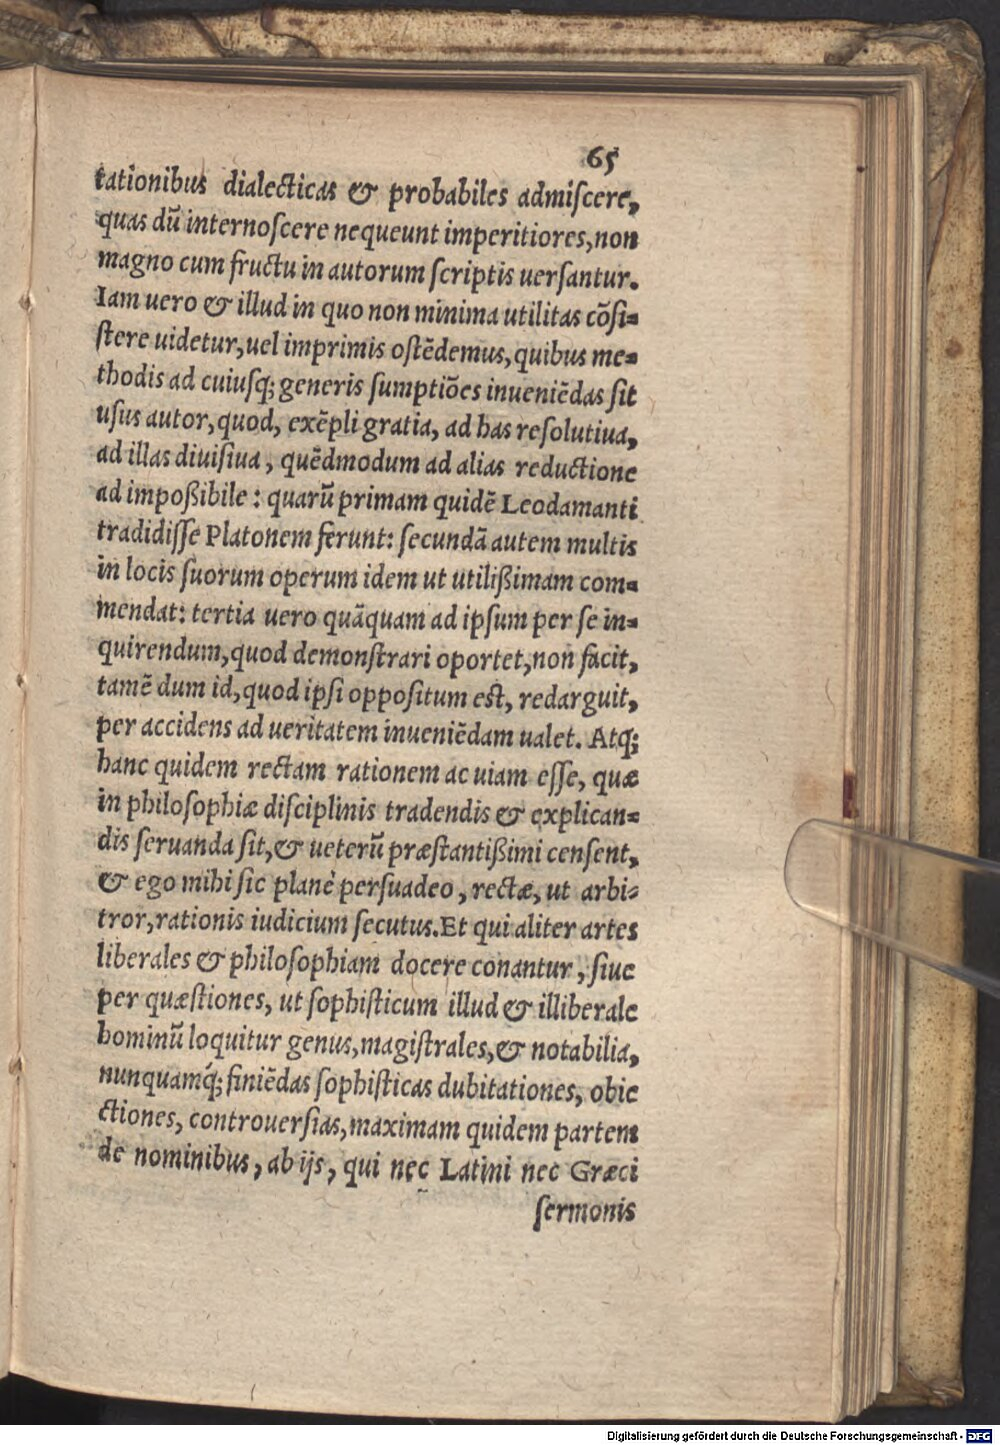 65
tationibus dialecticas & probabiles admiſcere,
quas dũ internoſcere nequeunt imperitiores, non
magno cum fructu in autorum ſcriptis uerſantur.
Iam uero & illud in quo non minima utilitas cõſi=
ſtere uidetur, uel imprimis oſtẽdemus, quibus me=
thodis ad cuiuſq; generis ſumptiões inueniẽdas ſit
uſus autor, quod, exẽpli gratia, ad has reſolutiua,
ad illas diuiſiua, quẽdmodum ad alias reductione
ad impoßibile: quarũ primam quidẽ Leodamanti
tradidiſſe Platonem ferunt: ſecundã autem multis
in locis ſuorum operum idem ut utilißimam com=
mendat: tertia uero quãquam ad ipſum per ſe in=
quirendum, quod demonſtrari oportet, non facit,
tamẽ dum id, quod ipſi oppoſitum eſt, redarguit,
per accidens ad ueritatem inueniẽdam ualet. Atq;
hanc quidem rectam rationem ac uiam eſſe, quæ
in philoſophiæ diſciplinis tradendis & explican=
dis ſeruanda ſit, & ueterũ præſtantißimi cenſent,
& ego mihi ſic planè perſuadeo, rectæ, ut arbi=
tror, rationis iudicium ſecutus. Et qui aliter artes
liberales & philoſophiam docere conantur, ſiue
per quæſtiones, ut ſophiſticum illud & illiberale
hominũ loquitur genus, magiſtrales, & notabilia,
nunquamq́; finiẽdas ſophiſticas dubitationes, obie
ctiones, controuerſias, maximam quidem partem
de nominibus, ab ijs, qui nec Latini nec Græci
ſermonis
Digitalisierung gefördert durch die Deutsche Forschungsgemeinschaft - DFG